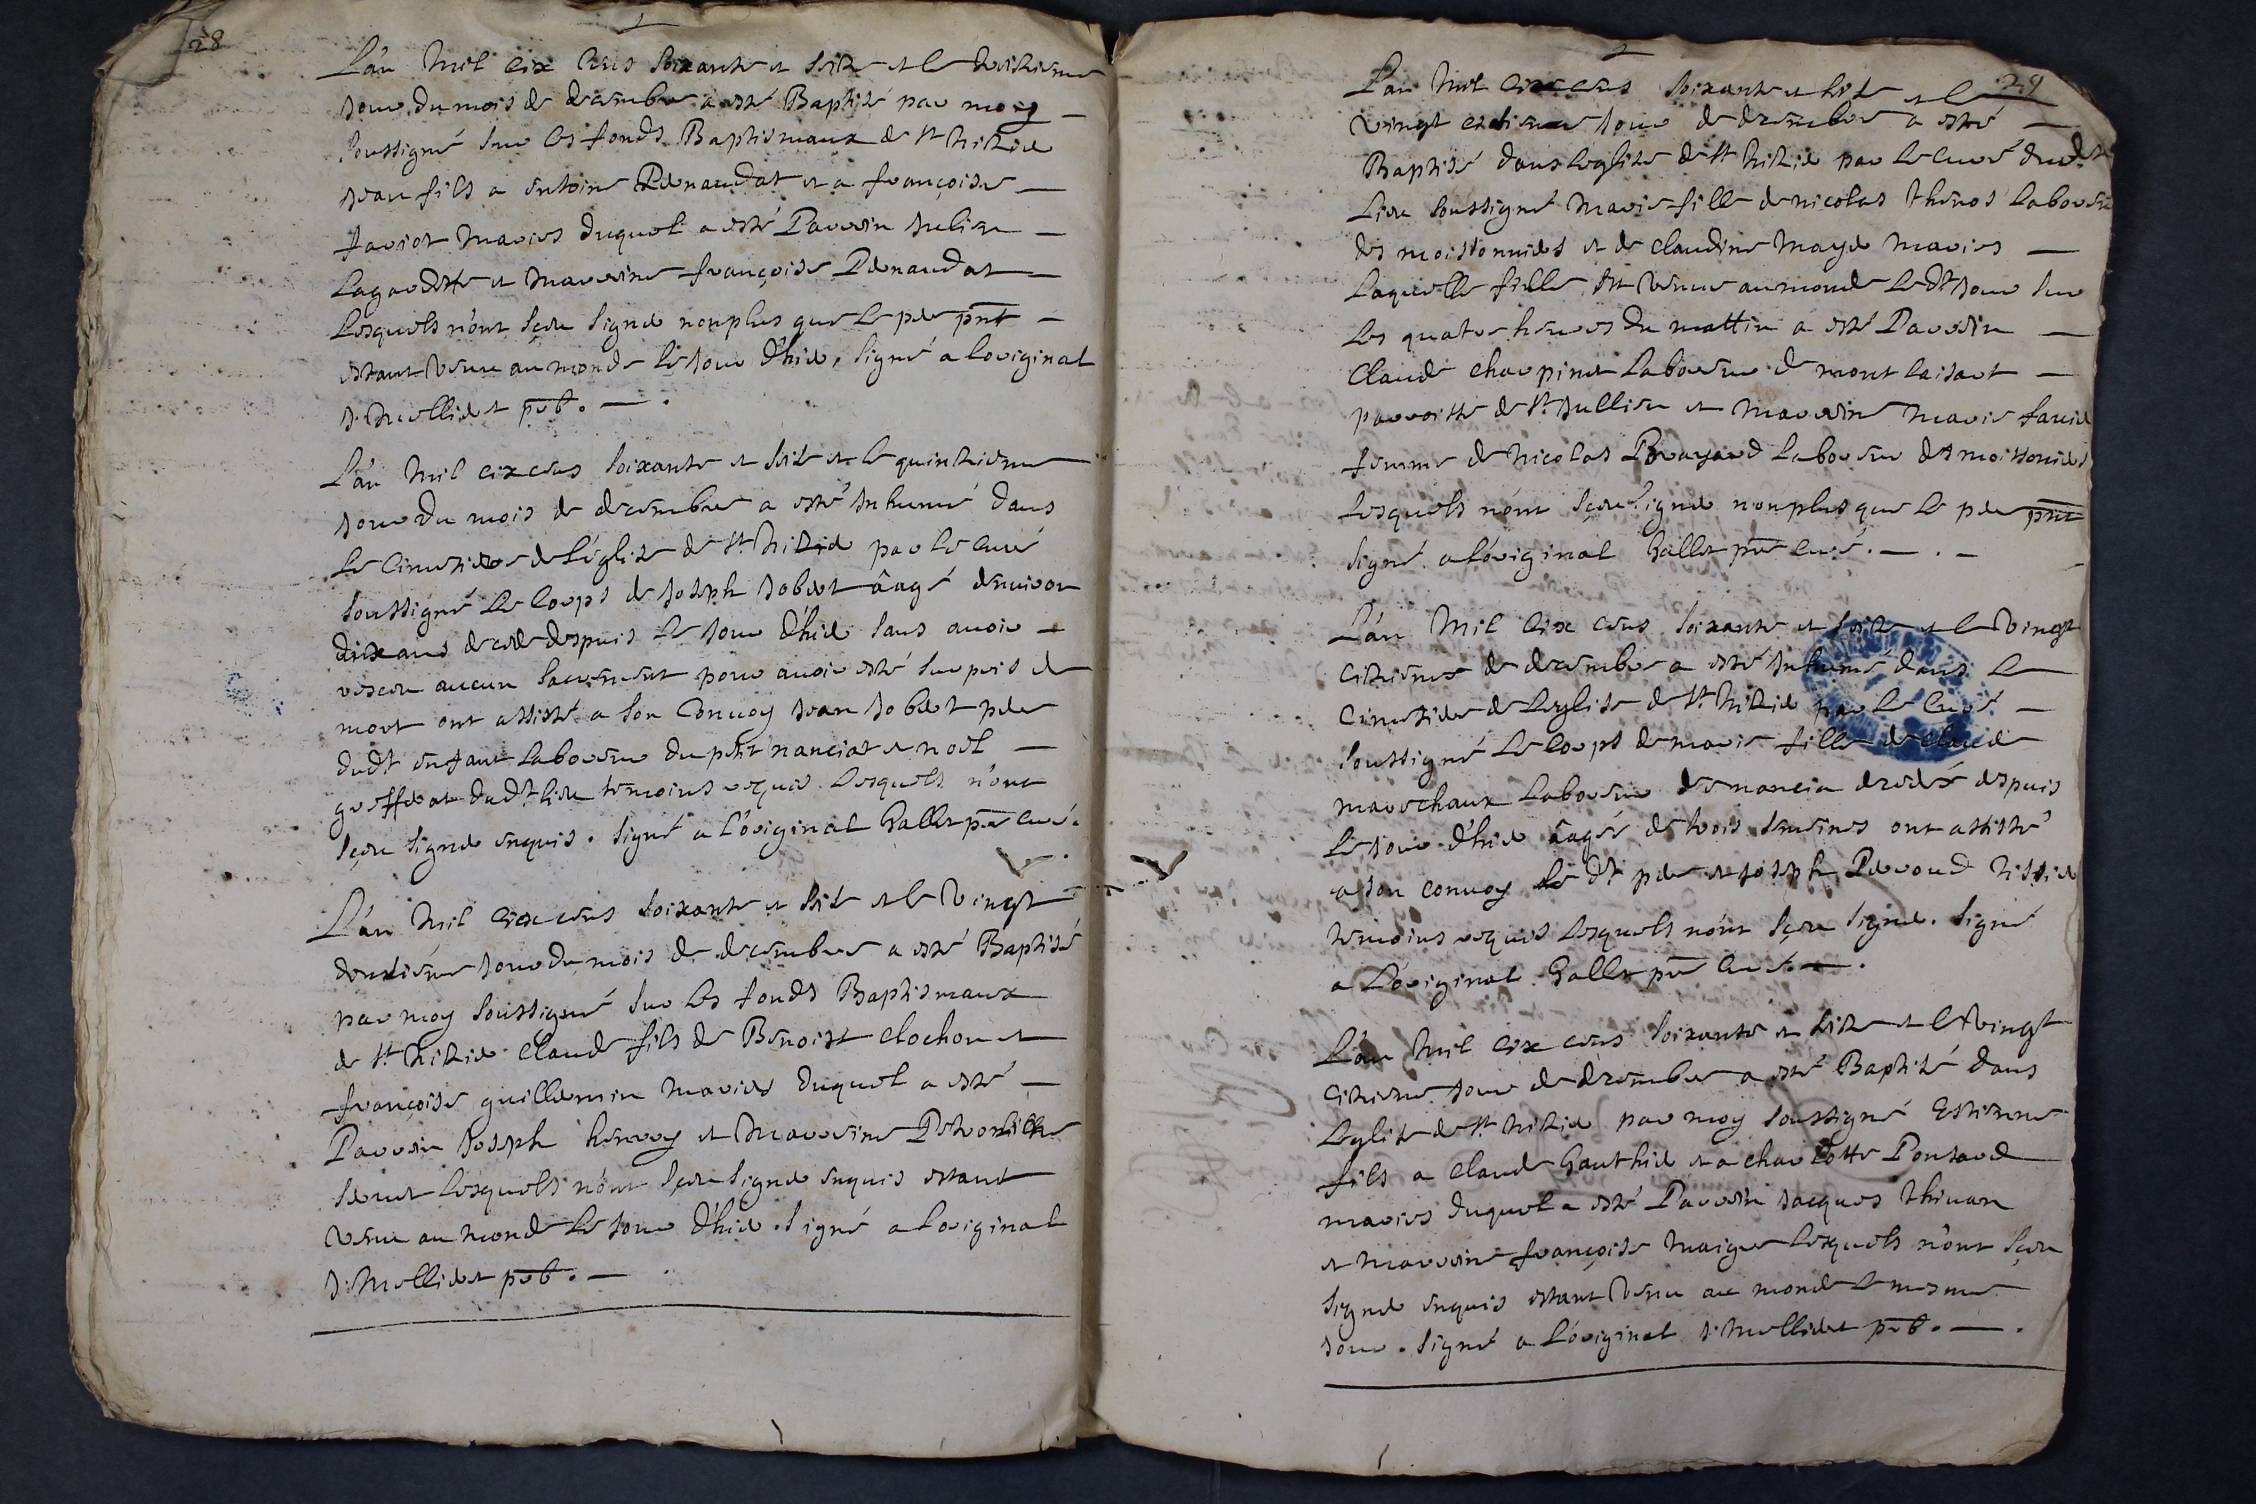 28
L'an Mil six cens soixante et seize et le treizieme
jour du mois de decembre a esté Baptisé par moy
soussigné sur les fonds Baptismaux de St Nizier
Jean fils a Antoine Renaudat et a françoise
faviot mariés duquel a esté Parrein Julien
Lagardette et Marreine françoise Renaudat
Lesquels n'ont sçeu signer nonplus que le per pnt
estant venu au monde le jour d'hier, signé a loriginal
J. Melliet pbt.
L'an Mil six cens soixante et seize et le quinzieme
jour du mois de decembre a esté Inhumé dans
le Cimetiere de l'église de St Nizier par le Curé
soussigné le corps de Joseph Jobert âagé denviron
dix ans decede despuis le jour d'hier sans avoir
resceu aucun sacrement pour avoir esté surpris de
mort ont assisté a son Convoy Jean Jobert per
dudt enfant Laboureur du petit nanciat et noël
greffet dudt lieu temoins requis Lesquels n'ont
sçeu signer enquis. signé a l'original Gallet ptr curé.
L'an Mil six cens soixante et seize et le vingt
deuxiéme jour du mois de decembre a esté Baptisé
par moy soussigné sur les fonds Baptismaux
de St Nizier Claude fils de Benoist clochon et
françoise guillemin mariés duquel a esté
Parrein Joseph hervoy et Marreine Petronille
Lesquels n'ont sçeu signer enquis estant
venu au monde le jour d'hier. signé a loriginal
J. Melliet pbt.
29
L'an Mil six cens soixante et seize et le
vingt sixieme jour de decembre a esté
Baptisé dans leglise de St Nizier par le curé dudt
Lieu soussigné Marie fille de nicolas thenos Laboureur
des moissonniers et de claudine Mayer mariés
Laquelle fille est venue au monde ledt jour sur
les quatre heures du mattin a esté Parrein
Claude charpinet Laboureur de mont
parroisse de St Jullien et Marreine Marie
femme de Nicolas Brayard Laboureur des moissoniers
Lesquels n'ont sçeu signer nonplus que le per pnt
signé a l'original Gallet ptr curé.
L'an Mil six cens soixante et seize et le vingt
sixiéme de decembre a esté Inhumé dans le
Cimetiere de Leglise de St Nizier par le Curé
soussigné le corps de marie fille de claude
mareschaux Laboureur de nancia decedée despuis
le jour d'hier âagée de trois semeines ont assisté
a son convoy le dt per et Joseph Peroud tissier
temoins requis Lesquels n'ont sçeu signer. signé
a L'original Gallet ptr curé.
L'an Mil six cens soixante et seize et le vingt
sixieme jour de decembre a esté Baptisé dans
Leglise de St Nizier par moy soussigné Estienne
fils a claude Gauthier et a charlotte Ponsard
mariés duquel a esté Parrein Jacques thivan
et Marreine françoise Maigre Lesquels n'ont sçeu
signer enquis estant venu au monde le mesme
jour. signé a L'original J. Melliet pbt.